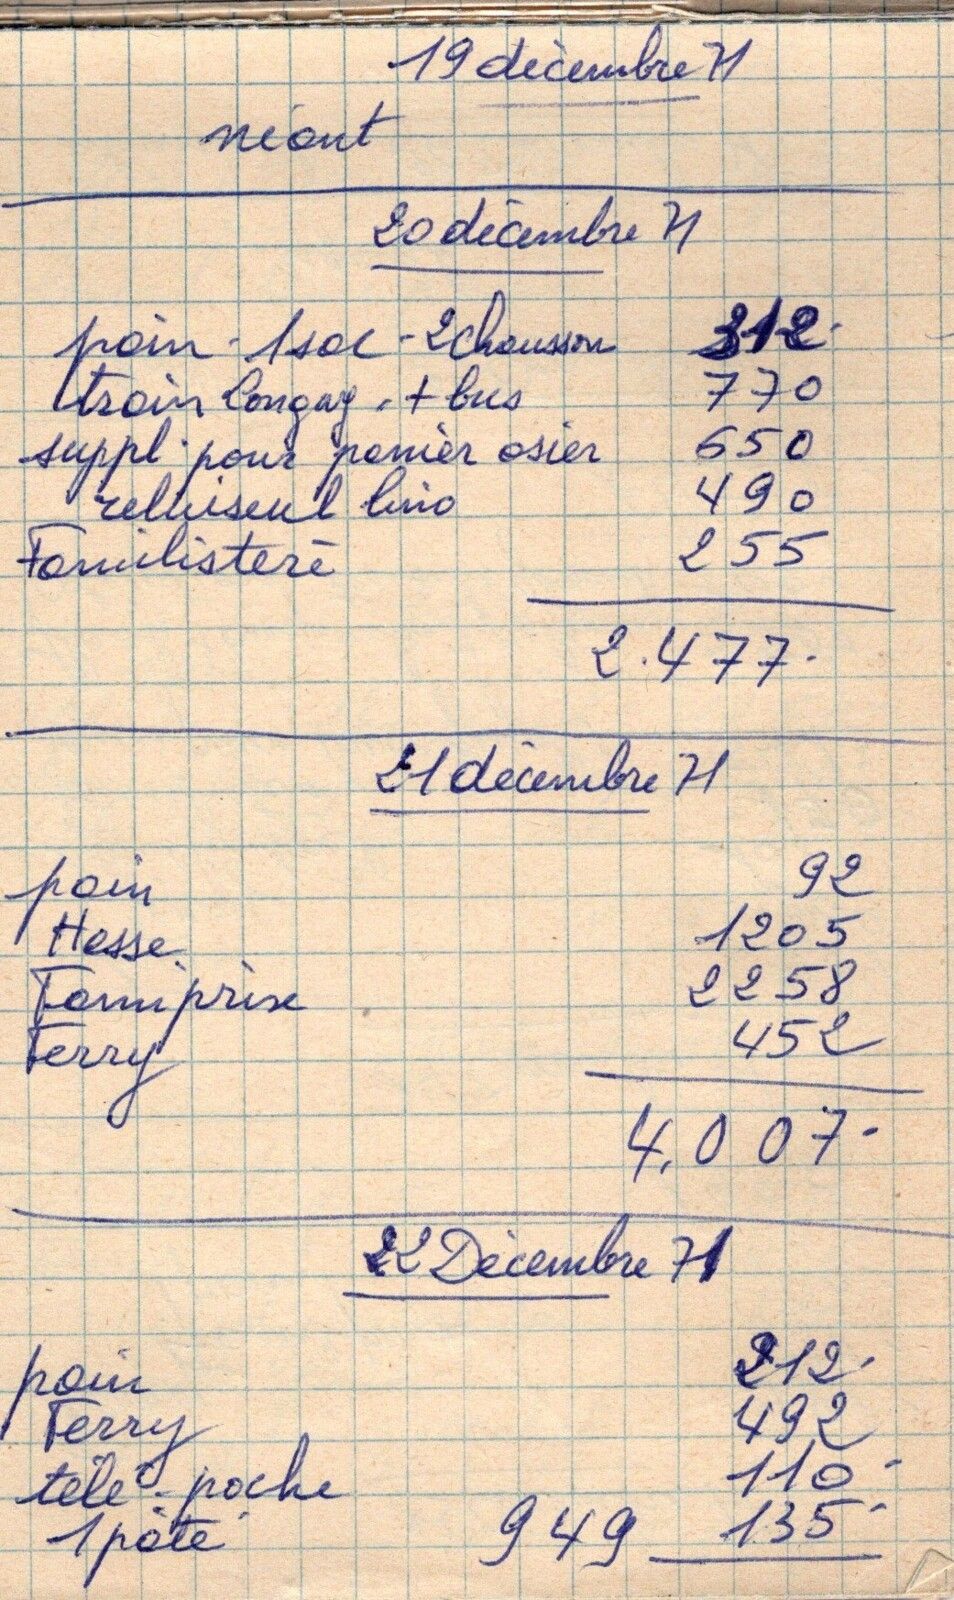 19 décembre 71
néant
20 décembre 71
pain - 1 sac - 2 chausson 312.
train Longwy. + bus 770
suppl. pour panier osier 650
reluiseul lino 490
Familistère 255
2.477.
21 décembre 71
pain 92
Hesse 1205
Famiprix 2258
Ferry 452
4.007.
22 Décembre 71
pain 212.
Ferry 492
télé-poche 110.
1 pâté 135.
949